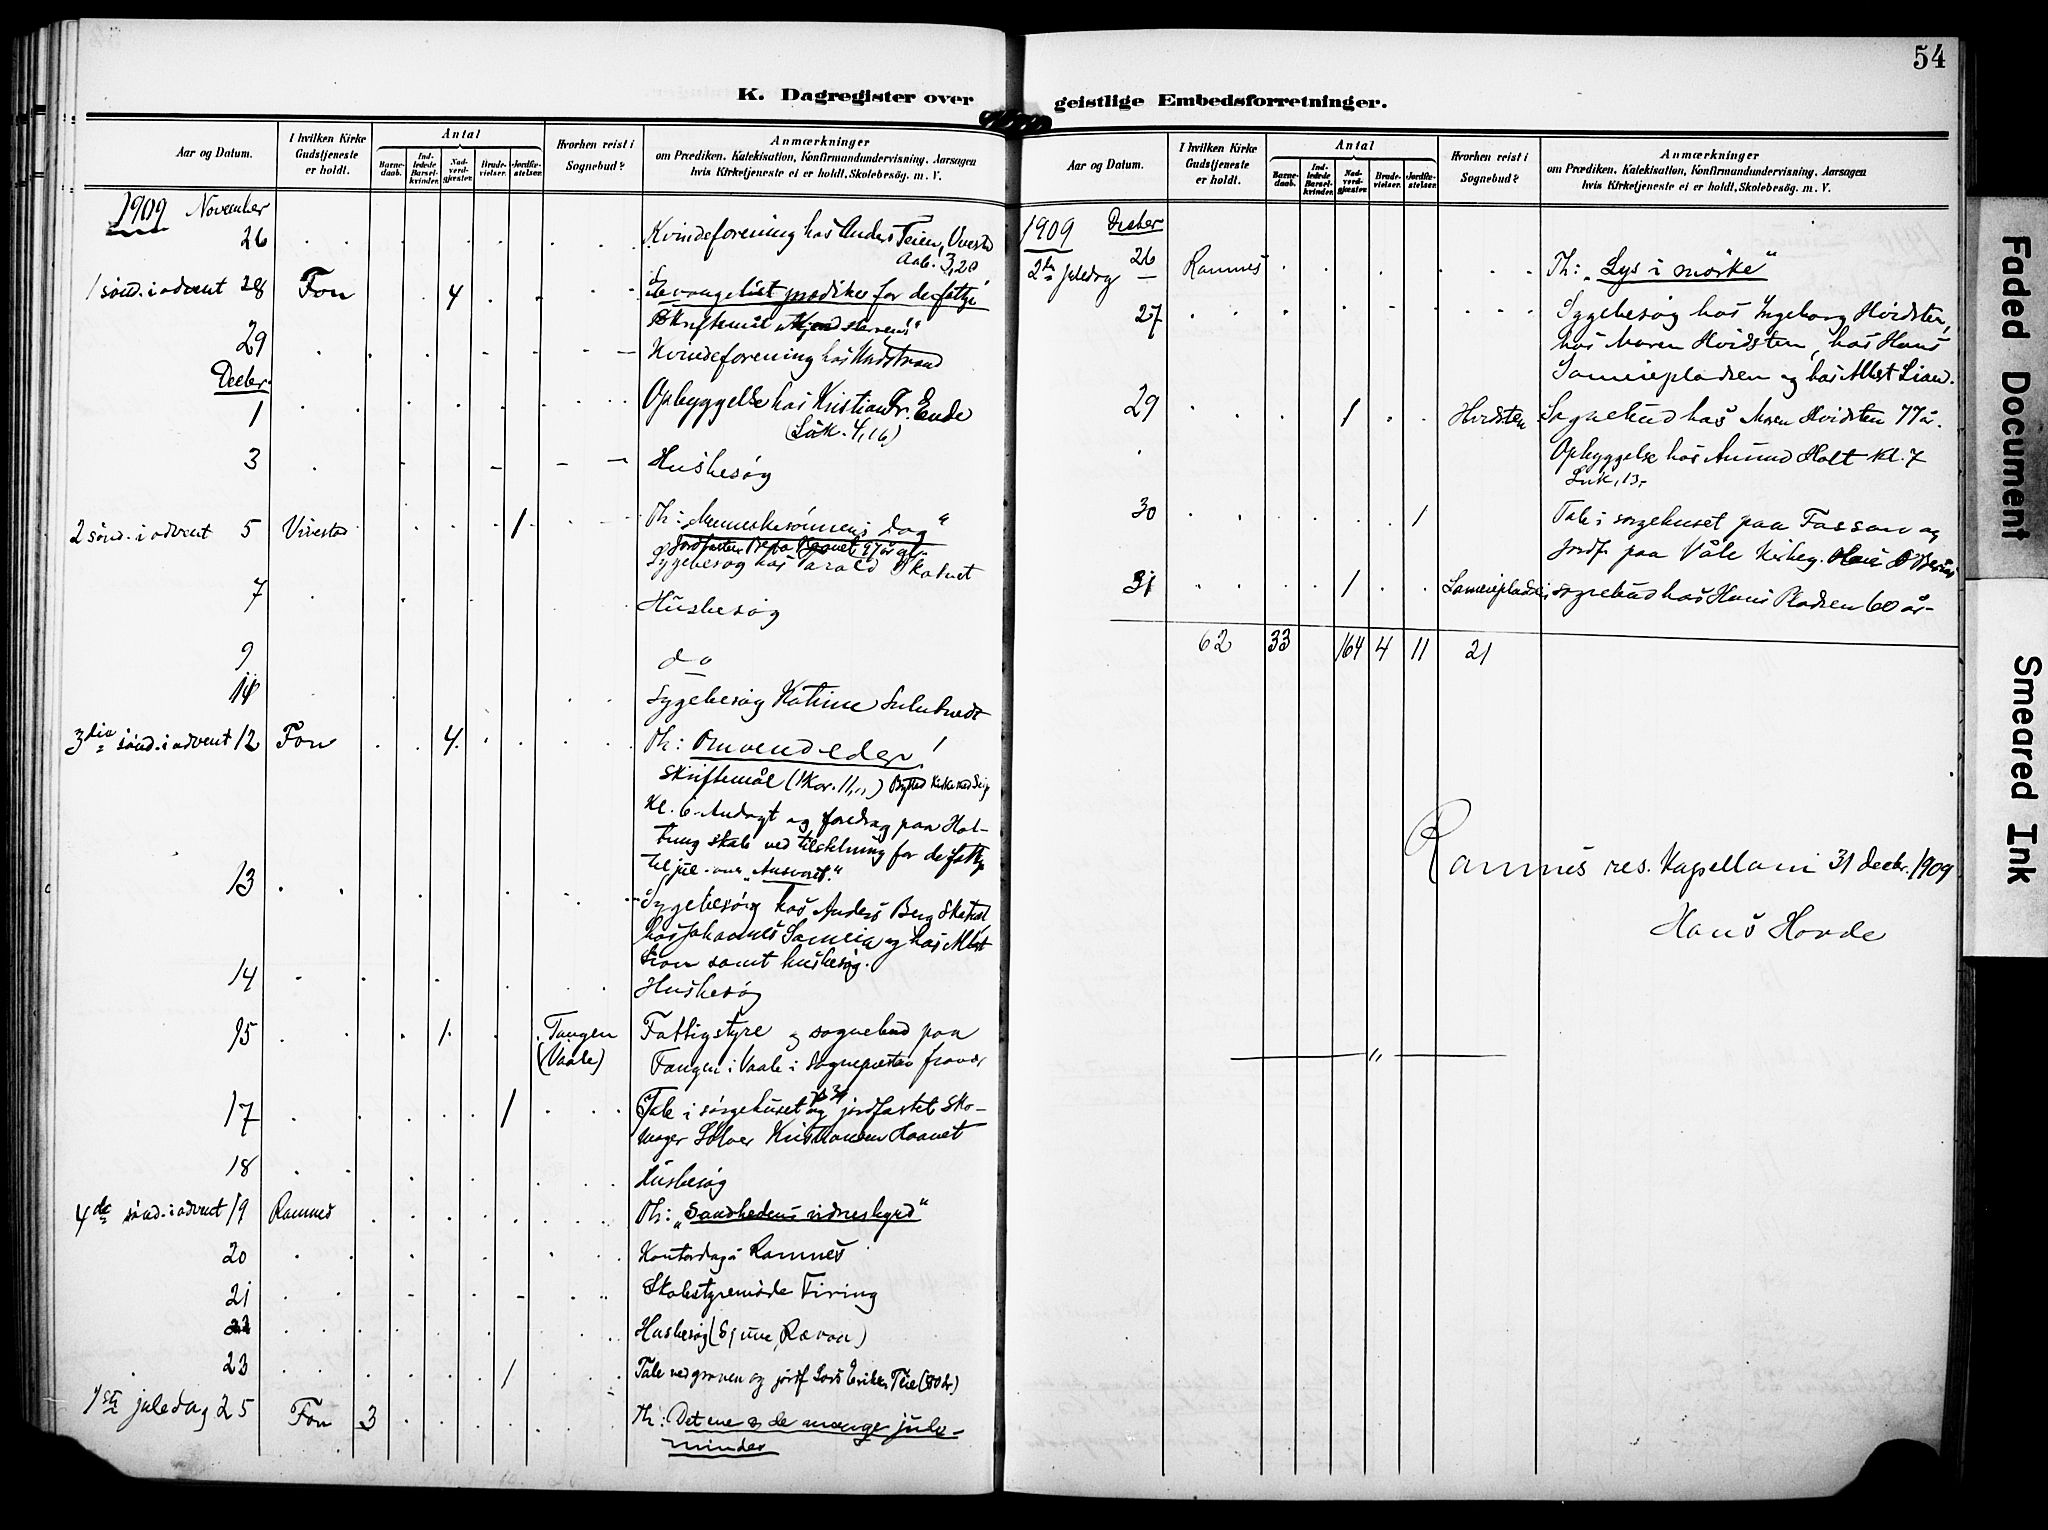 54
K. Dagregister over geistlige Embedsforretninger.
Aar og Datum.
I hvilken Kirke Gudstjeneste er holdt.
Antal
Barne-daab.
Ind-ledede Barsel-kvinder.
Nad-verd-gjæster.
Brude-vielser.
Jordfæ-stelser.
Hvorhen reist i Sognebud?
Anmærkninger
om Prædiken, Katekisation, Konfirmandundervisning, Aarsagen
hvis Kirketjeneste ei er holdt, Skolebesøg. m. V.
1909 November
26 Kvindeforening hos Anders Teien, Vivestad
Aab. 3,20
1 sönd. i advent 28 Fon 4 Evangeliet prædikes for de fattige
Skriftemål
29 Kvindeforening hos
Decbr.
1 Opbyggelse hos Kristian Fr. Ende
(Luk. 4,16)
3 Husbesøg
2 sönd. i advent 5 Vivestad 1 Th: Menneskesønnens dag"
Sygebesøg hos Harald Skatvet
7 Husbesøg
9 do
11 Sygebesøg Katrine
3die sönd. i advent 12 Fon 4 Th: Omvend eder!
Skriftemål (1 Kor. 11,
Kl. 6 Andagt og foredrag paa Hol-
tung skole ved tilstelning for de fattige
til jul over "Ansvaret."
13 Sygebesøg hos Anders Berg Skatvet
hos Johannes Sameia og hos Albert
Lian samt husbesøg.
14 Husbesøg
15 1 Tangen
(Vaale)
Fattigstyre og sognebud paa
Tangen i Vaale i Sogneprestens fravær
17 1 Tale i sørgehuset og jordfæstet Sko-
mager Kristiansen Haavet
18 Husbesøg
4de sönd. i advent 19 Ramnes Th: "Sandhedens vidnesbyrd"
20 Kontordag i Ramnes
21 Skolestyremöde Firing
22 Husbesøg (Sjuve, Rævaa)
23 1 Tale ved graven og jordf Teie (80 år)
1ste juledag 25 Fon 3 Th: Det ene og de mange jule-
minder
Aar og Datum.
I hvilken Kirke Gudstjeneste er holdt.
Antal
Barne-daab.
Ind-ledede Barsel-kvinder.
Nad-verd-gjæster.
Brude-vielser.
Jordfæ-stelser.
Hvorhen reist i Sognebud?
Anmærkninger
om Prædiken, Katekisation, Konfirmandundervisning, Aarsagen
hvis Kirketjeneste ei er holdt, Skolebesøg. m. V.
1909 Decber
2den juledag 26 Ramnes Th: "Lys i mörke"
27 Sygebesøg hos Ingeborg Hvidsten,
hos Maren Hvidsten, hos Hans
Sameiepladsen og hos Albert Lian.
29 1 Hvidsten Sognebud hos Maren Hvidsten 77 år.
Opbyggelse hos Amund Holt kl. 7
Luk. 13,
30 1 Tale i sørgehuset paa Fossan og
jordf. paa Våle Kirkeg.
31 1 Sameiepladsen Sognebud hos Hans Pladsen 60 år
62 33 164 4 11 21
Ramnes res. Kapellani 31 decbr. 1909
Hans Hovde
Faded Document
Smeared Ink